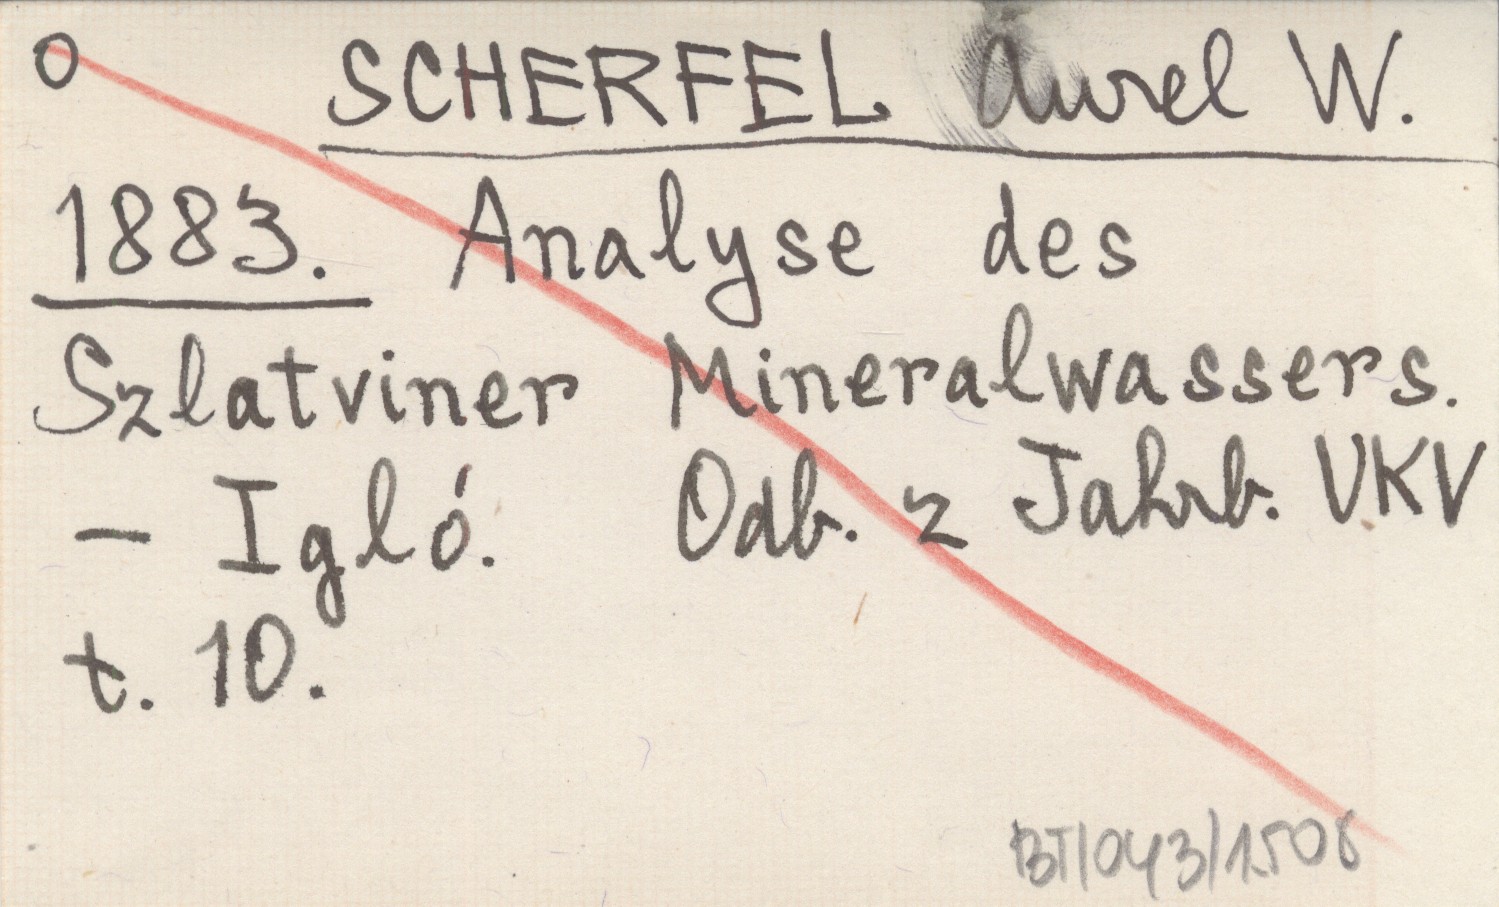 O SCHERFEL Aurel W.
1883. Analyse des
Szlatviner Mineralwassers.
– Igló. Odb. z Jahrb. VKV
t. 10.
BT/043/1508